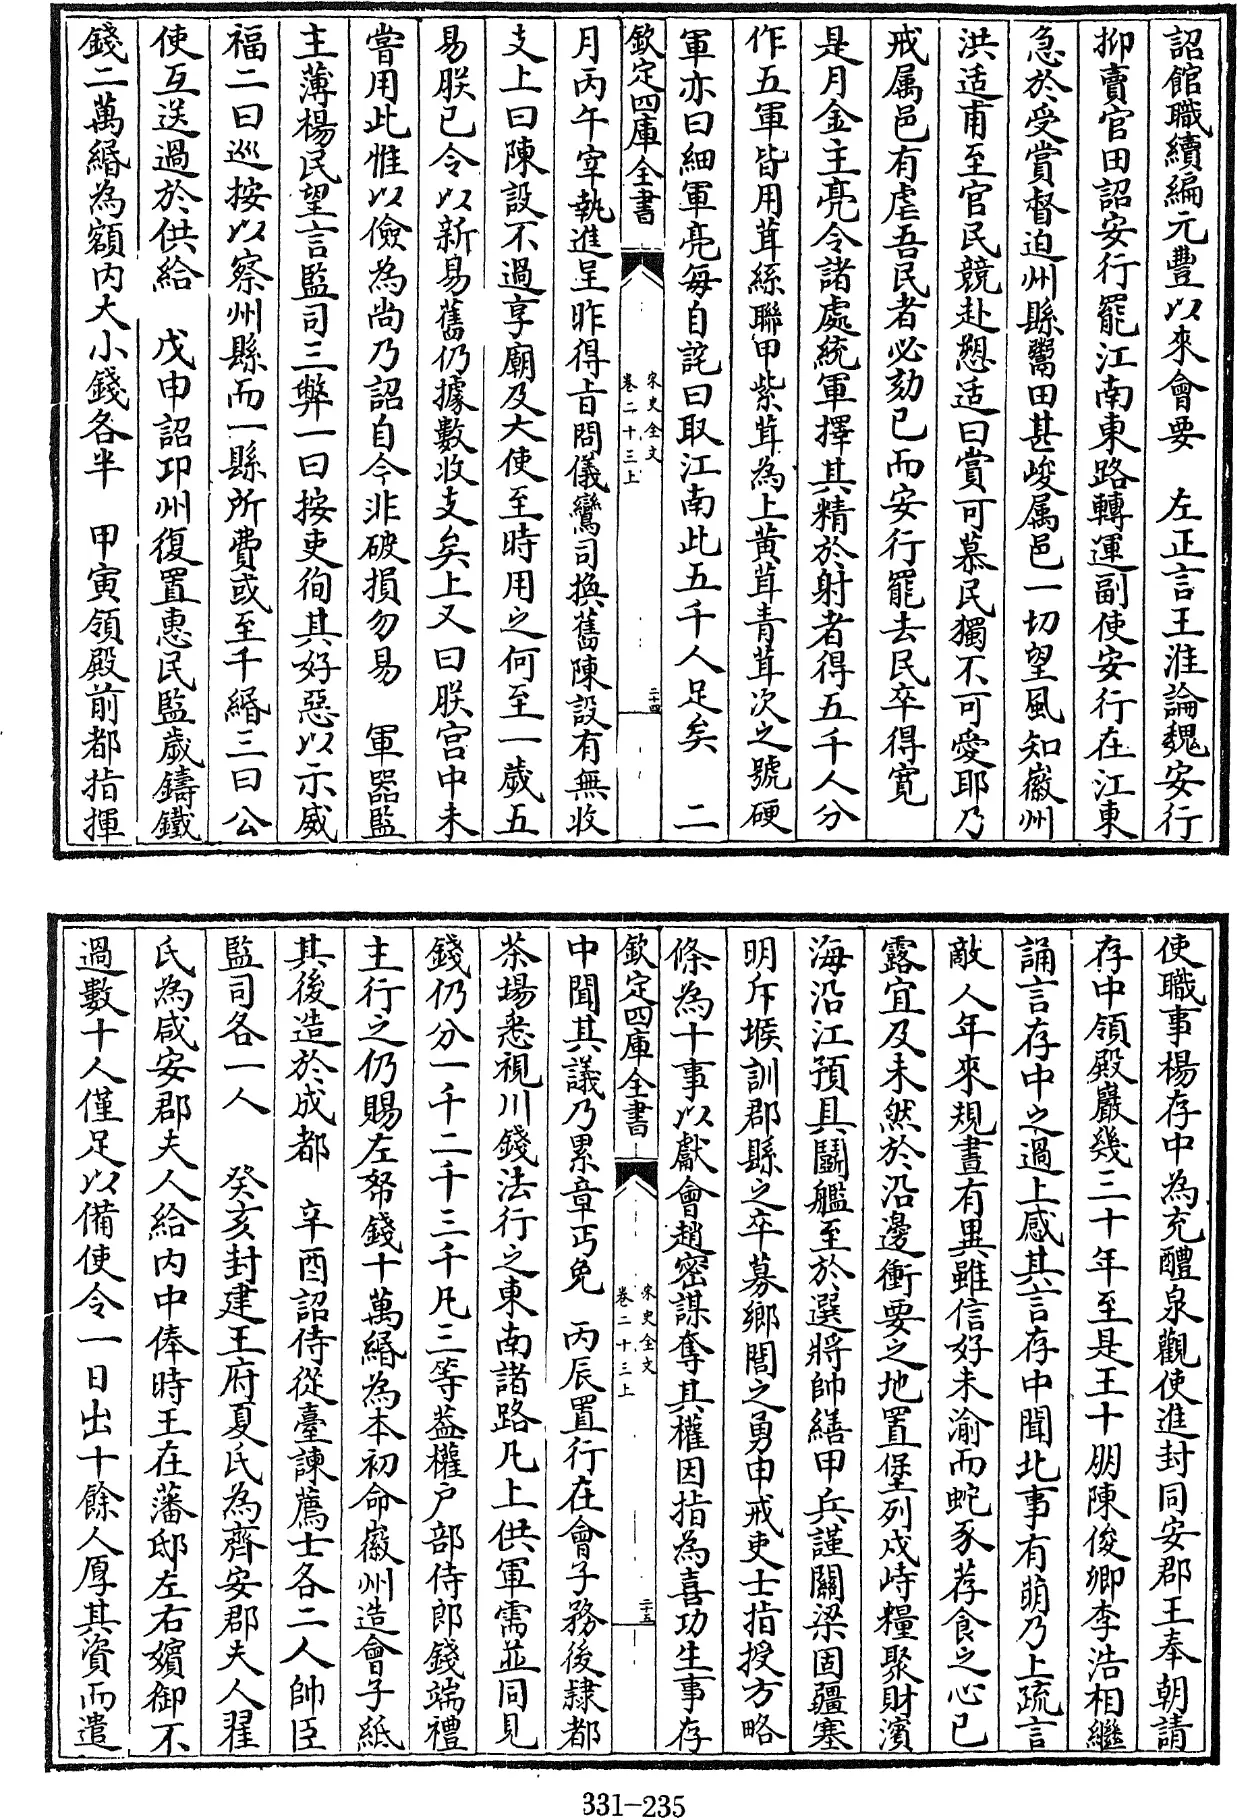 詔館職續編元豐以來會要　左正言王淮論魏安行
抑賣官田詔安行罷江南東路轉運副使安行在江東
急於受賞督迫州縣鬻田甚峻属邑一切望風知徽州
洪适甫至官民競赴愬适曰賞可慕民獨不可愛耶乃
戒属邑有虐吾民者必劾已而安行罷去民卒得寛
是月金主亮令諸處統軍擇其精於射者得五千人分
作五軍皆用茸絲聯甲紫茸為上黄茸青茸次之號硬
軍亦曰細軍亮每自詫曰取江南此五千人足矣　二
欽定四庫全書
宋史全文
卷二十三上
二十四
月丙午宰執進呈昨得旨問儀鸞司換舊陳設有無收
支上曰陳設不過享廟及大使至時用之何至一歲五
易朕已令以新易舊仍據數收支矣上又曰朕宫中未
嘗用此惟以儉為尚乃詔自今非破損勿易　軍器監
主薄楊民望言監司三弊一曰按吏徇其好惡以示威
福二曰巡按以察州縣而一縣所費或至千緡三曰公
使互送過於供給　戊申詔卭州復置惠民監歲鑄鐵
錢二萬緡為額内大小錢各半　甲寅領殿前都指揮
使職事楊存中為充醴泉觀使進封同安郡王奉朝請
存中領殿巖幾三十年至是王十朋陳俊卿李浩相繼
誦言存中之過上感其言存中聞北事有萌乃上疏言
敵人年來規畫有異雖信好未渝而蛇豕荐食之心已
露宜及未然於沿邊衝要之地置堡列戍峙糧聚財濱
海沿江預具鬭艦至於選將帥繕甲兵謹關梁固疆塞
明斥堠訓郡縣之卒募鄉閭之勇申戒吏士指授方略
條為十事以獻會趙密謀奪其權因指為喜功生事存
欽定四庫全書
宋史全文
卷二十三上
二十五
中聞其議乃累章丐免　丙辰置行在會子務後隷都
茶場悉視川錢法行之東南諸路凡上供軍需並同見
錢仍分一千二千三千凡三等葢權户部侍郎錢端禮
主行之仍賜左帑錢十萬緡為本初命徽州造會子紙
其後造於成都　辛酉詔侍從臺諫薦士各二人帥臣
監司各一人　癸亥封建王府夏氏為齊安郡夫人翟
氏為咸安郡夫人給内中俸時王在藩邸左右嬪御不
過數十人僅足以備使令一日出十餘人厚其資而遣
331-235